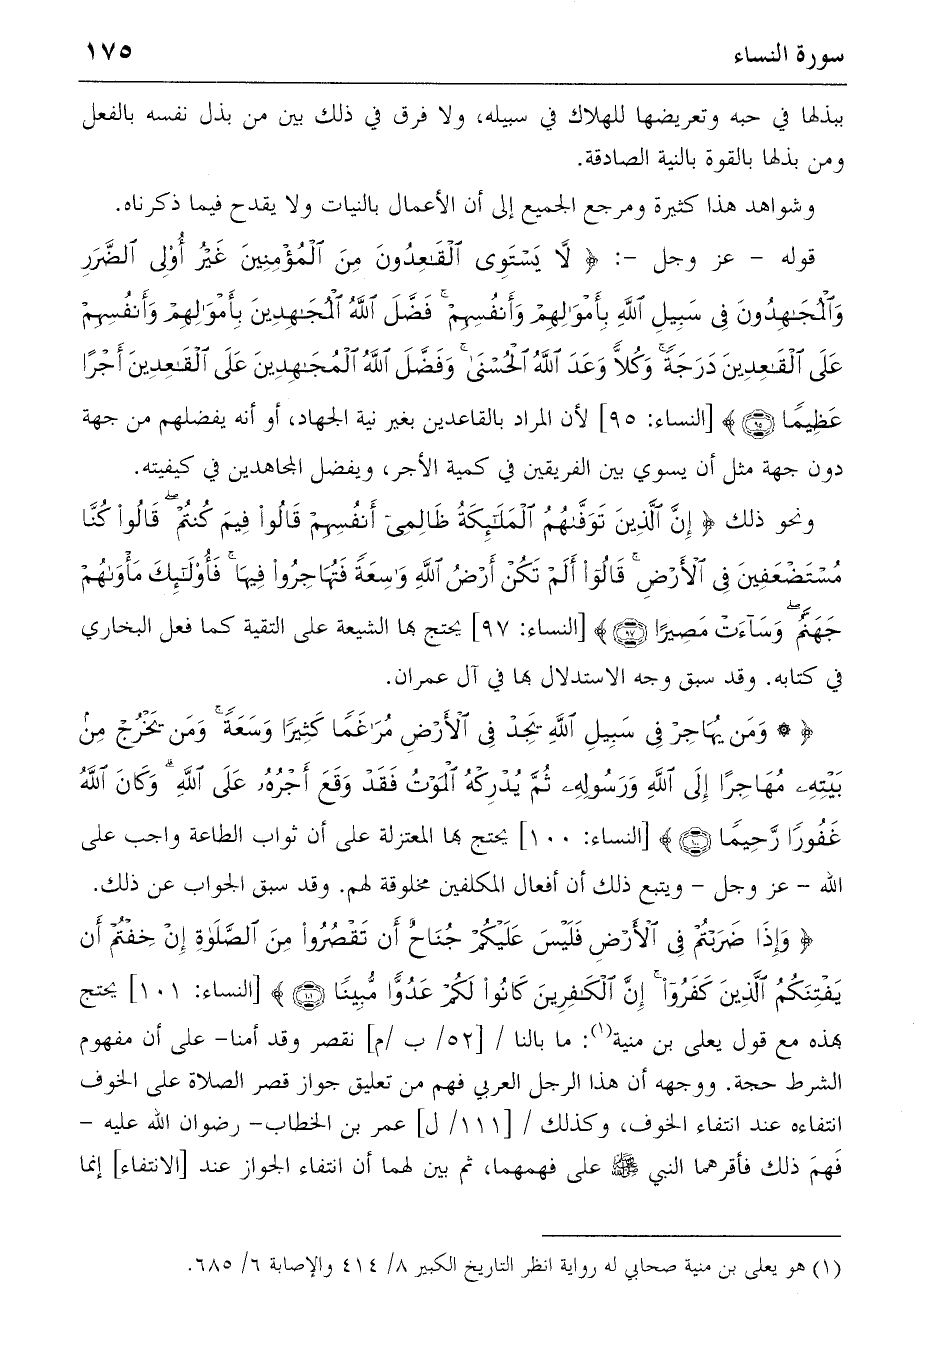 سورة النساء ١٧٥
ببذلها في حبه وتعريضها للهلاك في سبيله، ولا فرق في ذلك بين من بذل نفسه بالفعل
ومن بذلها بالقوة بالنية الصادقة.
وشواهد هذا كثيرة ومرجع الجميع إلى أن الأعمال بالنيات ولا يقدح فيما ذكرناه.
قوله – عز وجل –: ﴿ لَّا يَسْتَوِى ٱلْقَـٰعِدُونَ مِنَ ٱلْمُؤْمِنِينَ غَيْرُ أُو۟لِى ٱلضَّرَرِ
وَٱلْمُجَـٰهِدُونَ فِى سَبِيلِ ٱللَّهِ بِأَمْوَٰلِهِمْ وَأَنفُسِهِمْ ۚ فَضَّلَ ٱللَّهُ ٱلْمُجَـٰهِدِينَ بِأَمْوَٰلِهِمْ وَأَنفُسِهِمْ
عَلَى ٱلْقَـٰعِدِينَ دَرَجَةً ۚ وَكُلًّا وَعَدَ ٱللَّهُ ٱلْحُسْنَىٰ ۚ وَفَضَّلَ ٱللَّهُ ٱلْمُجَـٰهِدِينَ عَلَى ٱلْقَـٰعِدِينَ أَجْرًا
عَظِيمًا ٩٥ ﴾ [النساء: ٩٥] لأن المراد بالقاعدين بغير نية الجهاد، أو أنه يفضلهم من جهة
دون جهة مثل أن يسوي بين الفريقين في كمية الأجر، ويفضل المجاهدين في كيفيته.
ونحو ذلك ﴿ إِنَّ ٱلَّذِينَ تَوَفَّىٰهُمُ ٱلْمَلَـٰٓئِكَةُ ظَالِمِىٓ أَنفُسِهِمْ قَالُوا۟ فِيمَ كُنتُمْ ۖ قَالُوا۟ كُنَّا
مُسْتَضْعَفِينَ فِى ٱلْأَرْضِ ۚ قَالُوٓا۟ أَلَمْ تَكُنْ أَرْضُ ٱللَّهِ وَٰسِعَةً فَتُهَاجِرُوا۟ فِيهَا ۚ فَأُو۟لَـٰٓئِكَ مَأْوَىٰهُمْ
جَهَنَّمُ ۖ وَسَآءَتْ مَصِيرًا ٩٧ ﴾ [النساء: ٩٧] يحتج بها الشيعة على التقية كما فعل البخاري
في كتابه. وقد سبق وجه الاستدلال بها في آل عمران.
﴿ ۞ وَمَن يُهَاجِرْ فِى سَبِيلِ ٱللَّهِ يَجِدْ فِى ٱلْأَرْضِ مُرَٰغَمًا كَثِيرًا وَسَعَةً ۚ وَمَن يَخْرُجْ مِنۢ
بَيْتِهِۦ مُهَاجِرًا إِلَى ٱللَّهِ وَرَسُولِهِۦ ثُمَّ يُدْرِكْهُ ٱلْمَوْتُ فَقَدْ وَقَعَ أَجْرُهُۥ عَلَى ٱللَّهِ ۗ وَكَانَ ٱللَّهُ
غَفُورًا رَّحِيمًا ١٠٠ ﴾ [النساء: ١٠٠] يحتج بها المعتزلة على أن ثواب الطاعة واجب على
الله – عز وجل – ويتبع ذلك أن أفعال المكلفين مخلوقة لهم. وقد سبق الجواب عن ذلك.
﴿ وَإِذَا ضَرَبْتُمْ فِى ٱلْأَرْضِ فَلَيْسَ عَلَيْكُمْ جُنَاحٌ أَن تَقْصُرُوا۟ مِنَ ٱلصَّلَوٰةِ إِنْ خِفْتُمْ أَن
يَفْتِنَكُمُ ٱلَّذِينَ كَفَرُوٓا۟ ۚ إِنَّ ٱلْكَـٰفِرِينَ كَانُوا۟ لَكُمْ عَدُوًّا مُّبِينًا ١٠١ ﴾ [النساء: ١٠١] يحتج
بهذه مع قول يعلى بن منية(١): ما بالنا / [٥٢/ ب /م] نقصر وقد أمنا– على أن مفهوم
الشرط حجة. ووجهه أن هذا الرجل العربي فهم من تعليق جواز قصر الصلاة على الخوف
انتفاءه عند انتفاء الخوف، وكذلك / [١١١/ ل] عمر بن الخطاب– رضوان الله عليه –
فَهمَ ذلك فأقرهما النبي ﷺ على فهمهما، ثم بين لهما أن انتفاء الجواز عند [الانتفاء] إنما
(١) هو يعلى بن منية صحابي له رواية انظر التاريخ الكبير ٨/ ٤١٤ والإصابة ٦/ ٦٨٥.